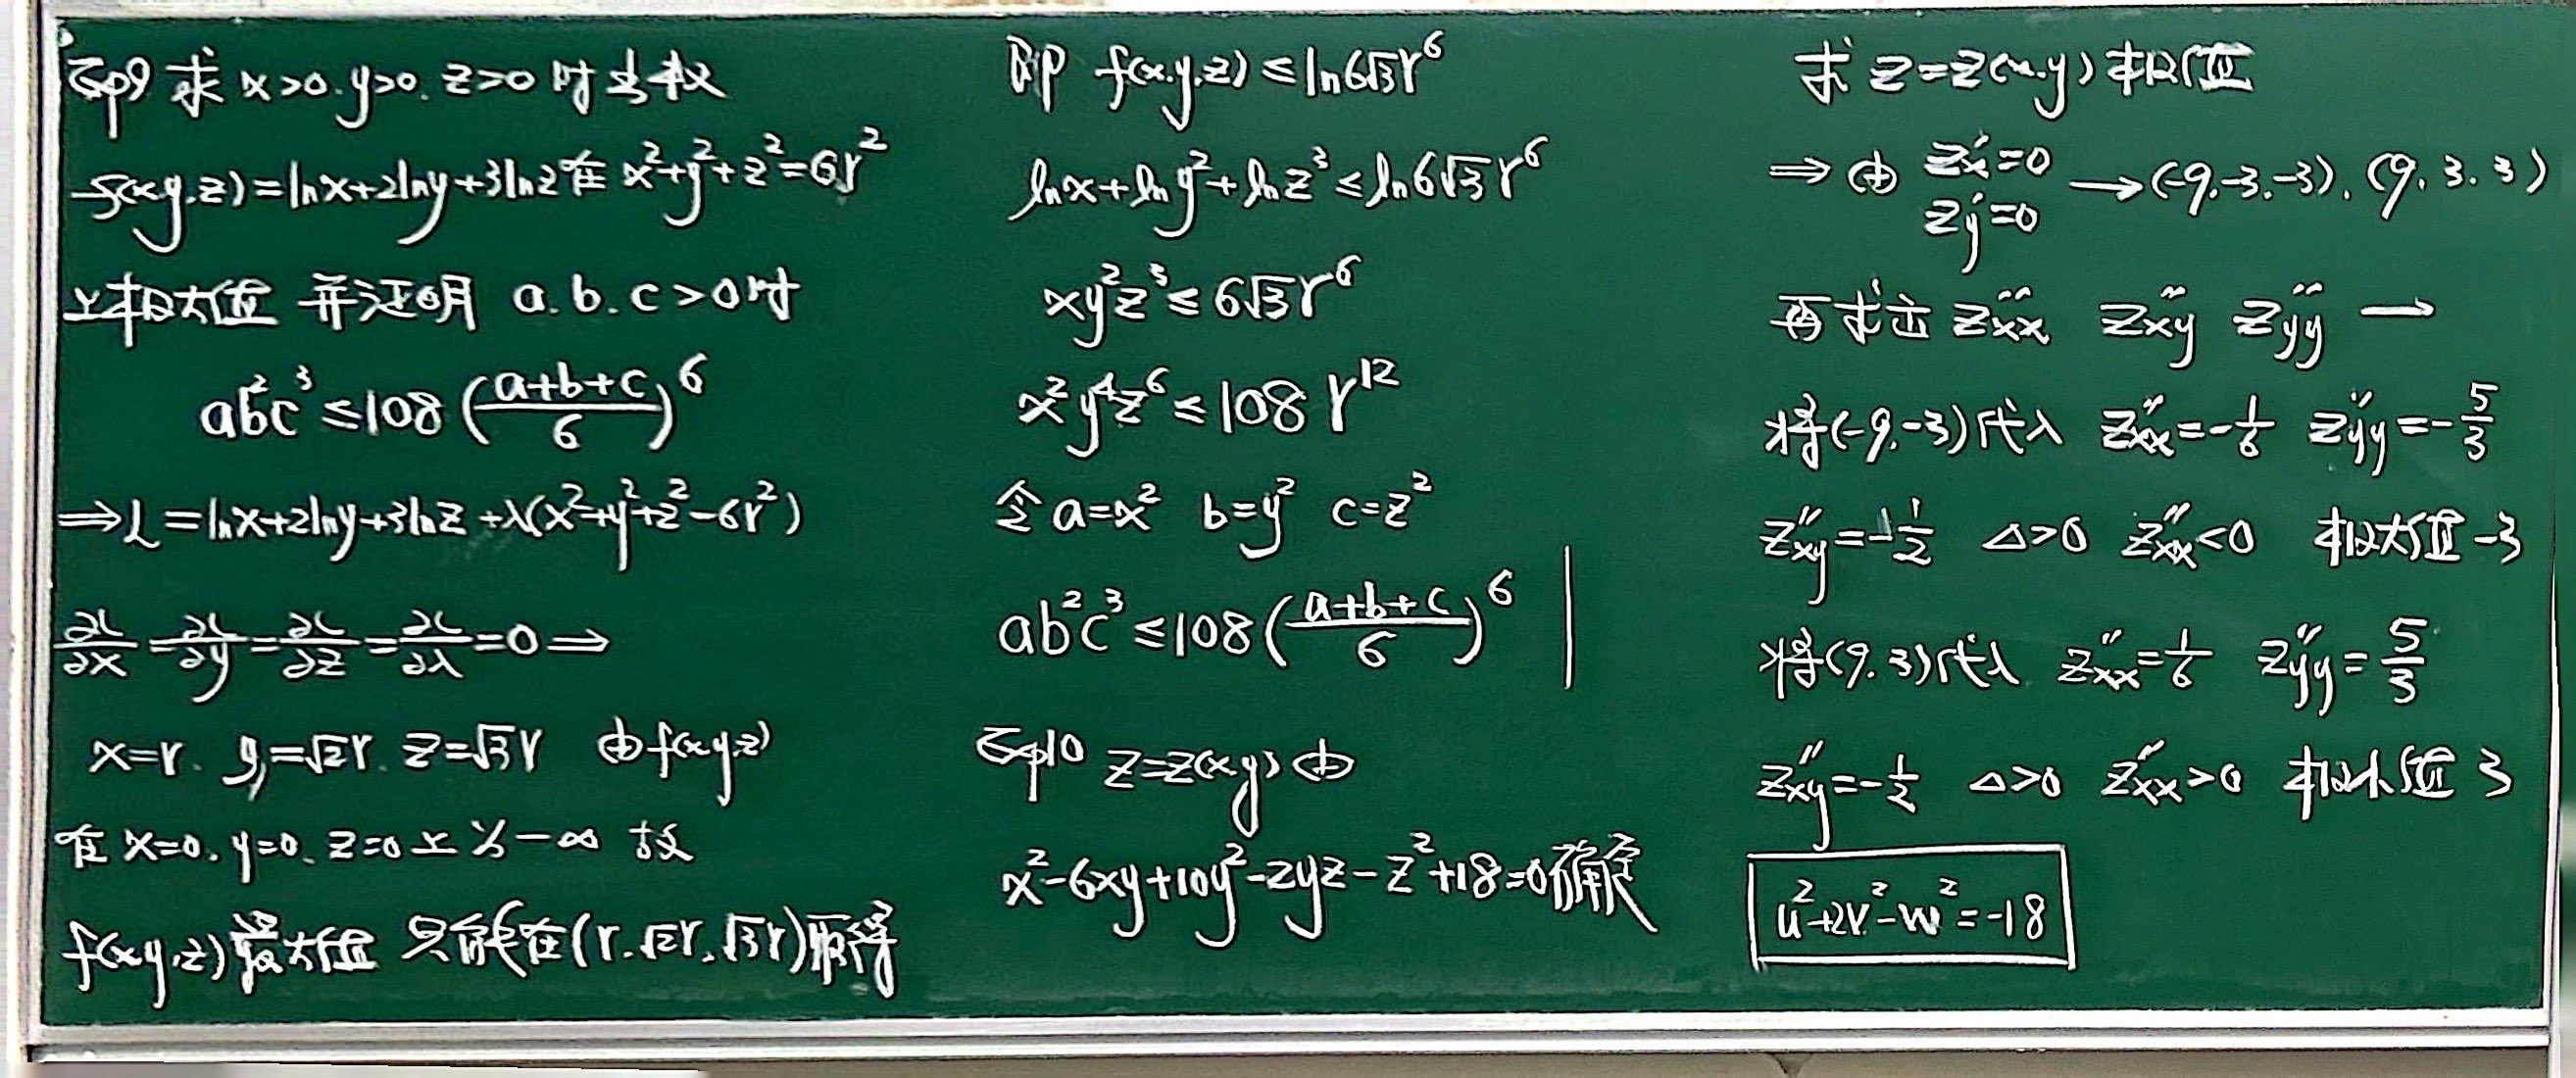 Exp9 求 x>0. y>0. z>0 时 函数
f(x.y.z)=lnx+2lny+3lnz 在 x²+y²+z²=6r²
上极大值 并证明 a.b.c>0时
ab²c³≤108(\frac{a+b+c}{6})⁶
⇒L=lnx+2lny+3lnz+λ(x²+y²+z²-6r²)
\frac{∂L}{∂x}=\frac{∂L}{∂y}=\frac{∂L}{∂z}=\frac{∂L}{∂λ}=0⇒
x=r. y=√2r. z=√3r 由f(x.y.z)
在 x=0. y=0. z=0上为-∞ 故
f(x.y.z)最大值 只能在(r.√2r.√3r)取得
即 f(x.y.z)≤ln6√3r⁶
lnx+lny²+lnz³≤ln6√3r⁶
xy²z³≤6√3r⁶
x²y⁴z⁶≤108r¹²
令a=x² b=y² c=z²
ab²c³≤108(\frac{a+b+c}{6})⁶
Exp10 z=z(x.y)由
x²-6xy+10y²-2yz-z²+18=0确定
求 z=z(x.y)极值
⇒由 z'x=0 z'y=0 →(-9.-3.-3). (9. 3. 3)
再求出 z''xx z''xy z''yy →
将(-9.-3)代入 z''xx=-\frac{1}{6} z''yy=-\frac{5}{3}
z''xy=\frac{1}{2} △>0 z''xx<0 极大值-3
将(9.3)代入 z''xx=\frac{1}{6} z''yy=\frac{5}{3}
z''xy=-\frac{1}{2} △>0 z''xx>0 极小值 3
u²+2v²-w²=-18